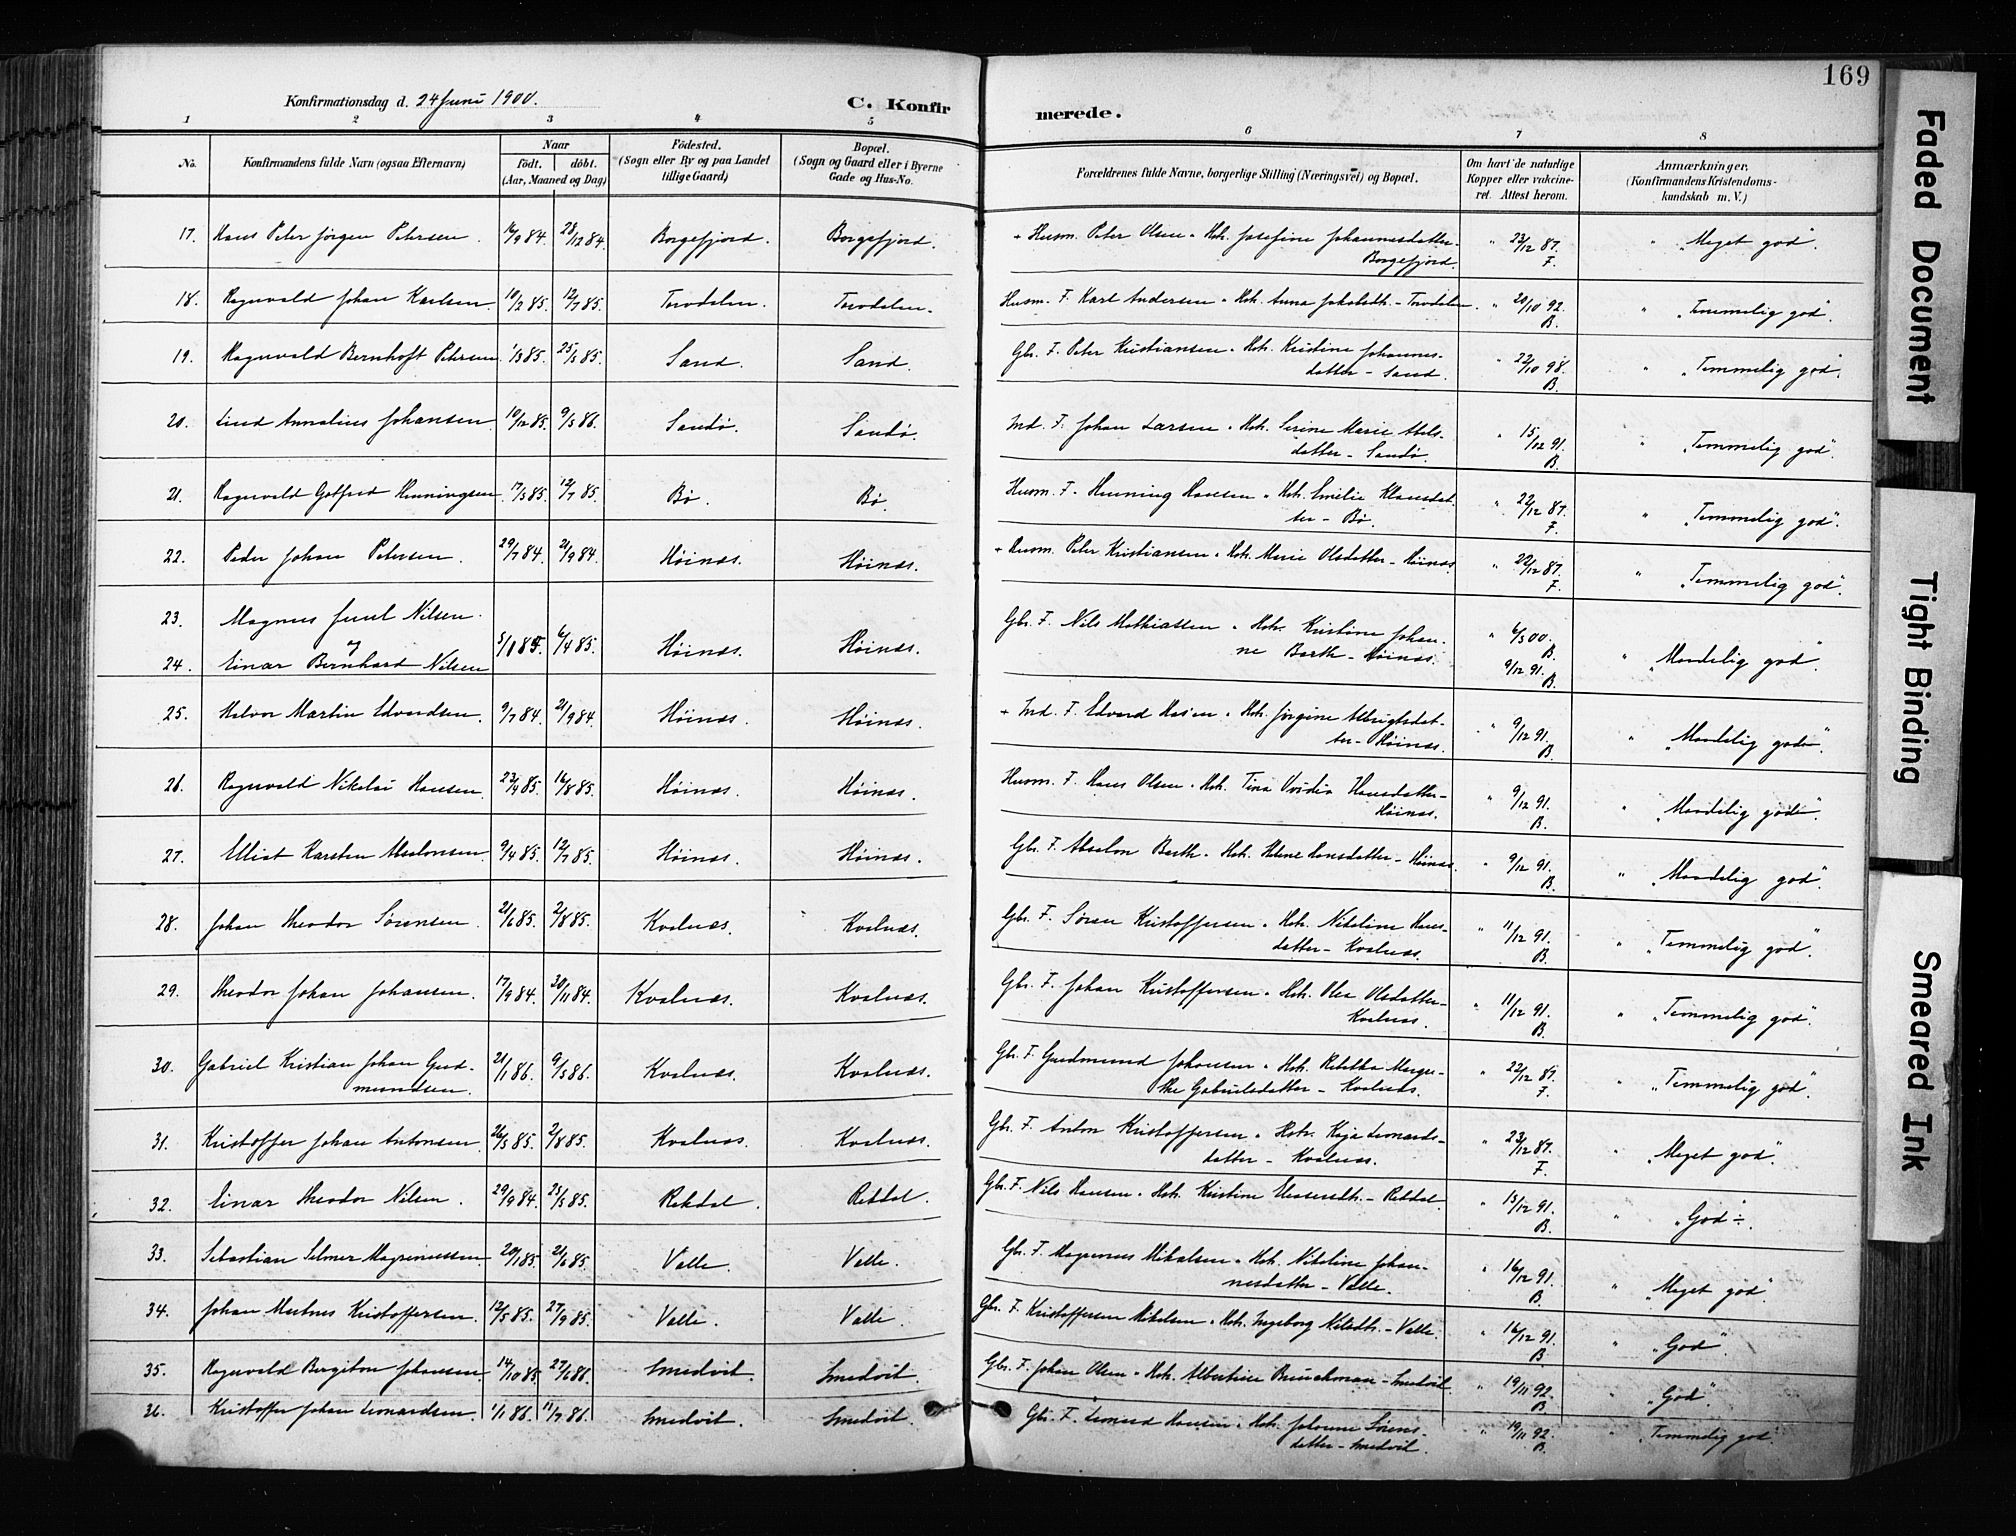 169
Konfirmationsdag d. 24 Juni 1900.
C. Konfirmerede.
1 2 3 4 5 6 7 8
No.
Konfirmandens fulde Navn (ogsaa Efternavn)
Naar
födt. döbt.
(Aar, Maaned og Dag)
Födested.
(Sogn eller By og paa Landet
tillige Gaard)
Bopæl.
(Sogn og Gaard eller i Byerne
Gade og Hus-No.
Forældrenes fulde Navne, borgerlige Stilling (Næringsvei) og Bopæl.
Om havt de naturlige
Kopper eller vakcine-
ret. Attest herom.
Anmærkninger.
(Konfirmandens Kristendoms-
kundskab m. V.)
17. Hans Peter Jörgen Petersen. 16/9 84. 28/12 84. Borgefjord. Borgefjord. + Husm. Peter Olsen. Hstr. Josefine Johannesdatter- " 23/12 87. " "Meget god".
Borgefjord. F.
18. Ragnvald Johan Karlsen. 10/2 85. 12/7 85. Torodalen. Torodalen. Husm. F. Karl Andersen. Hstr. Anna Jakobsdtr. - Torodalen. " 20/10 92. " "Temmelig god".
B.
19. Ragnvald Bernhoft Petersen 1/3 85. 25/5 85. Sand. Sand. Gbr. F. Peter Kristiansen. Hstr. Kristine Johannes- " 22/10 98. " "Temmelig god".
datter - Sand. B.
20. Johansen. 10/12 85. 9/5 86. Sandö. Sandö. Ind. F. Johan Larsen. Hstr. Serine Marie Abels- " 15/12 91. " "Temmelig god".
datter - Sandö. B.
21. Ragnvald Gotfred Henningsen. 17/3 85. 12/7 85. Bö. Bö. Husm. F. Henning Hansen. Hstr. Emilie Klausdat- " 22/12 87. " "Temmelig god".
ter - Bö. F.
22. Peder Johan Petersen. 29/7 84. 21/9 84. Höinæs. Höinæs. + Husm. Peter Kristiansen. Hstr. Marie Olsdatter - Höinæs " 22/12 87. " "Temmelig god".
F.
23. Magnus Juul Nilsen. Gbr. F. Nils Mathiassen. Hstr. Kristine Johan- " 6/3 00.
og 5/1 85. 6/4 85. Höinæs. Höinæs. ne Barth - Höinæs. B.
24. Einar Bernhard Nilsen 9/12 91. " "Maadelig god".
B.
25. Halvor Martin Edvardsen. 9/7 84. 21/9 84. Höinæs. Höinæs. + Ind. F. Edvard Hasen. Hstr. Jörgine Albrigtsdat- " 9/12 91. " "Maadelig god".
ter - Höinæs. B.
26. Ragnvald Nikolai Hansen. 23/4 85. 16/8 85. Höinæs. Höinæs. Husm. F. Hans Olsen. Hstr. Tina Ovidia Hansdatter- " 9/12 91. " "Maadelig god".
Höinæs. B.
27. Elliot Karsten Absalonsen. 9/4 85. 12/7 85. Höinæs. Höinæs. Gbr. F. Absalon Barth. Hstr. Helene Hansdatter - Höinæs " 9/12 91. " "Maadelig god".
B.
28. Johan Theodor Sörensen. 21/6 85. 2/8 85. Kvalnæs. Kvalnæs. Gbr. F. Sören Kristoffersen. Hstr. Nikoline Hans- " 11/12 91. " "Temmelig god".
datter - Kvalnæs. B.
29. Theodor Johan Johansen. 17/9 84. 30/11 84. Kvalnæs. Kvalnæs. Gbr. F. Johan Kristoffersen. Hstr. Olea Olsdatter- " 11/12 91. " "Temmelig god".
Kvalnæs. B.
30. Gabriel Kristian Johan Gud- 21/1 86. 9/5 86. Kvalnæs. Kvalnæs. Gbr. F. Gudmund Johansen. Hstr. Rebekka Margre- " 22/12 87. " "Temmelig god".
mundsen. the Gabrielsdatter - Kvalnæs. F.
31. Kristoffer Johan Antonsen. 26/5 85. 2/8 85. Kvalnæs. Kvalnæs. Gbr. F. Anton Kristoffersen. Hstr. Kaja Leonards- " 23/12 87. " "Meget god".
datter - Kvalnæs. F.
32. Einar Theodor Nilsen. 29/9 84. 25/5 85. Rekdal. Rekdal. Gbr. F. Nils Hansen. Hstr. Kristine - Rekdal. " 15/12 91. " "God ÷.
B.
33. Sebastian Selmer Magnussen. 20/1 85. 21/6 85. Valle. Valle. Gbr. F. Magnus Mikalsen. Hstr. Nikoline Johan- " 16/12 91. " "Meget god".
nesdatter - Valle. B.
34. Johan Kristoffersen. 12/5 85. 27/9 85. Valle. Valle. Gbr. F. Kristoffersen Mikalsen. Hstr. Ingeborg - Valle. " 16/12 91. " "God".
B.
35. Ragnvald Bergiton Johansen. 14/10 85. 27/6 86. Smedvik. Smedvik. Gbr. F. Johan Olsen. Hstr. Albertine - Smedvik. " 19/11 92. " "God".
B.
36. Kristoffer Johan Leonardsen. 1/1 86. 11/7 86. Smedvik. Smedvik. Gbr. F. Leonard Hansen. Hstr. Johanne Sörens- " 19/11 92. " "Temmelig god".
datter - Smedvik. B.
Faded Document
Tight Binding
Smeared Ink